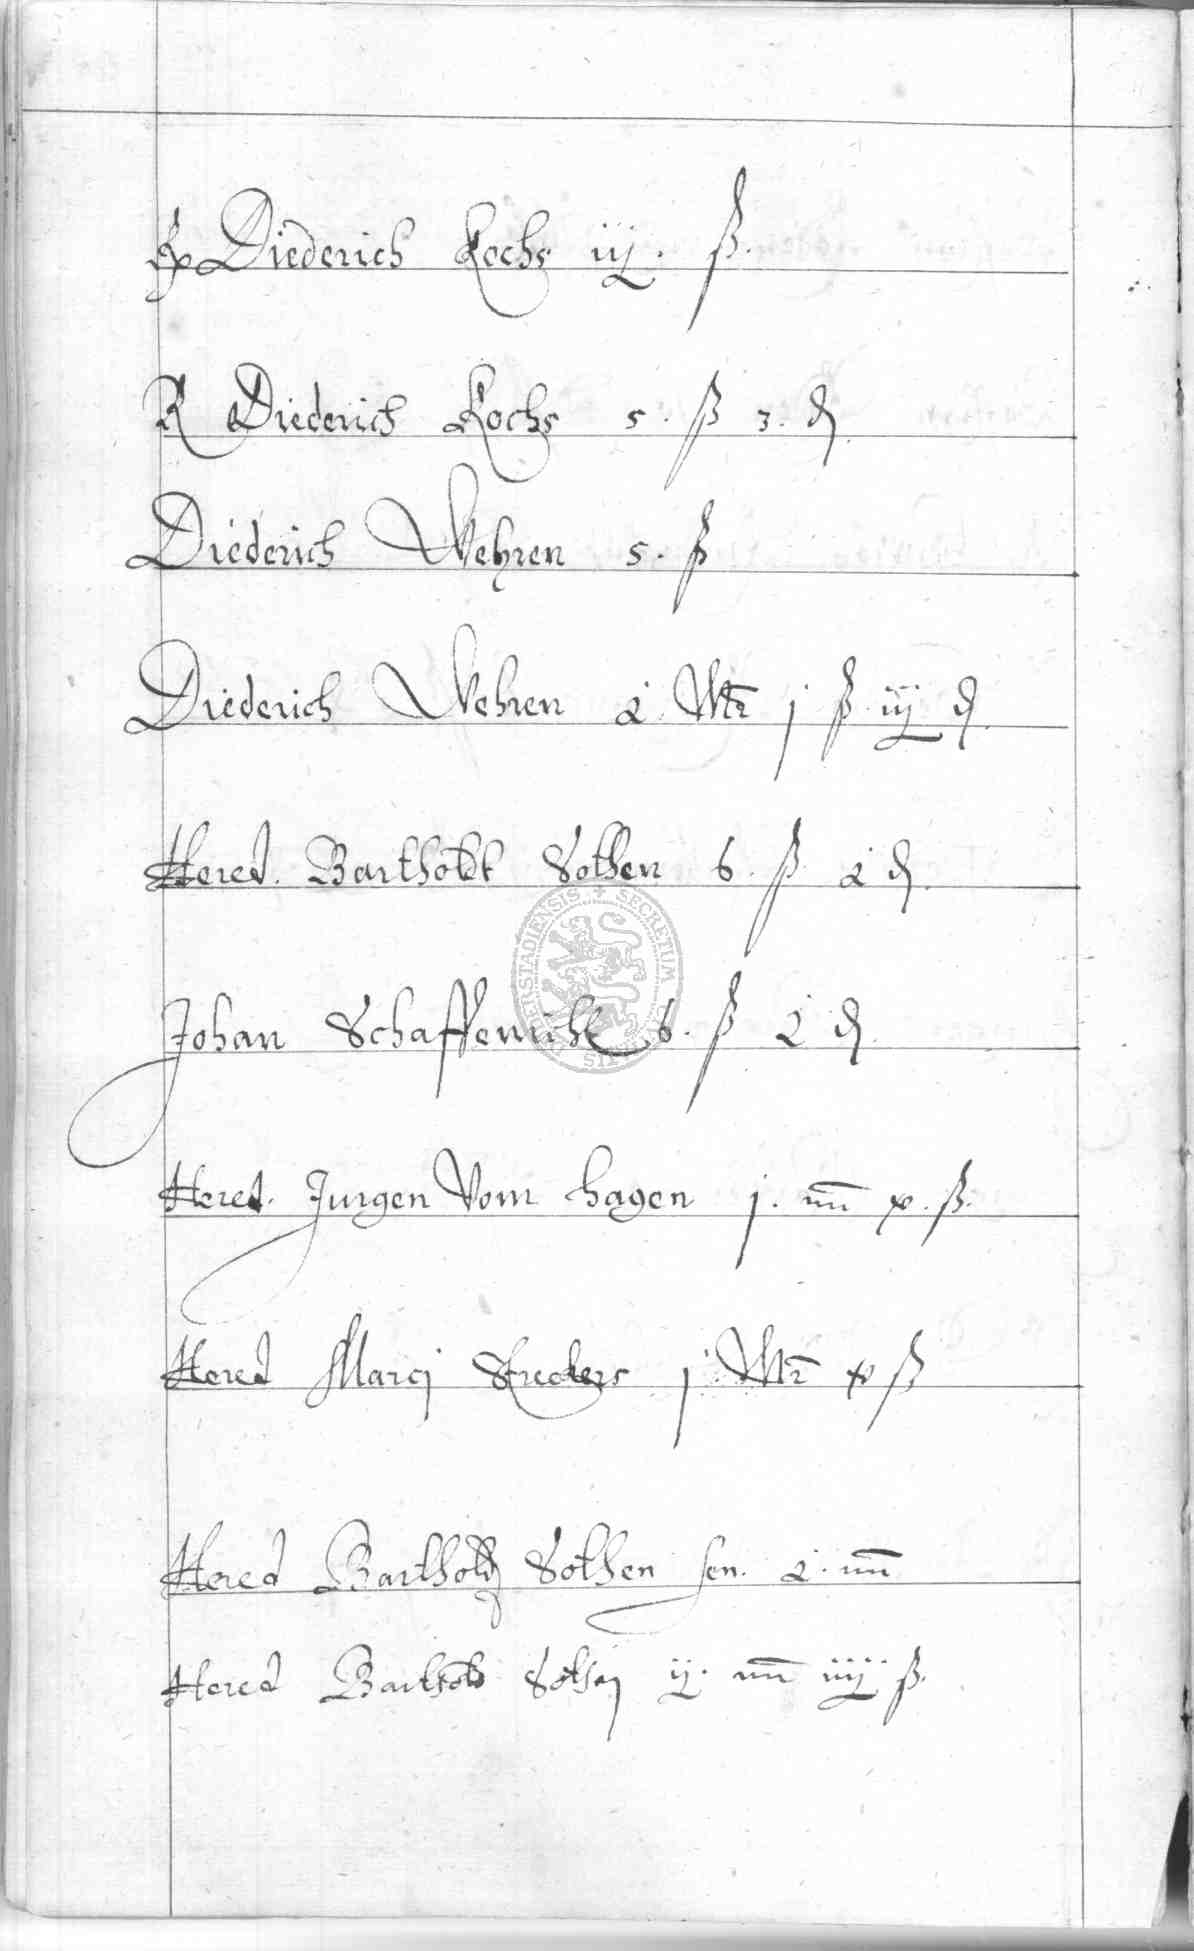 Diederich Kochs iij. ß.
R Diederich Kochs 5. ß 3. ₰
Diederich Wehren 5. ß
Diederich Wehren 2 Mr̄ j ß iij ₰
Hered. Bartholdt Sothen 6. ß 2 ₰
Johan Schaffenicht 6. ß 2 ₰
Hered. Jurgen Vom hagen j. m̄ x. ß.
Hered Marcj Streckers j Mr̄ x ß
Hered Barthold Sothen sen. 2. m̄
Hered Barthold Sothen ij. m̄ iiij ß.
SECRETUM